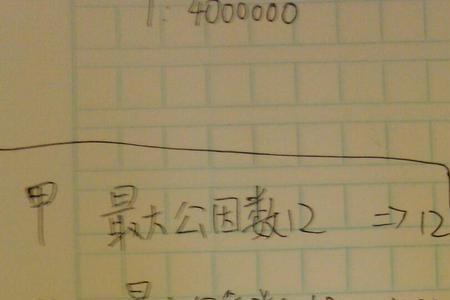 1:4000000
甲 最大公因数12 => 12